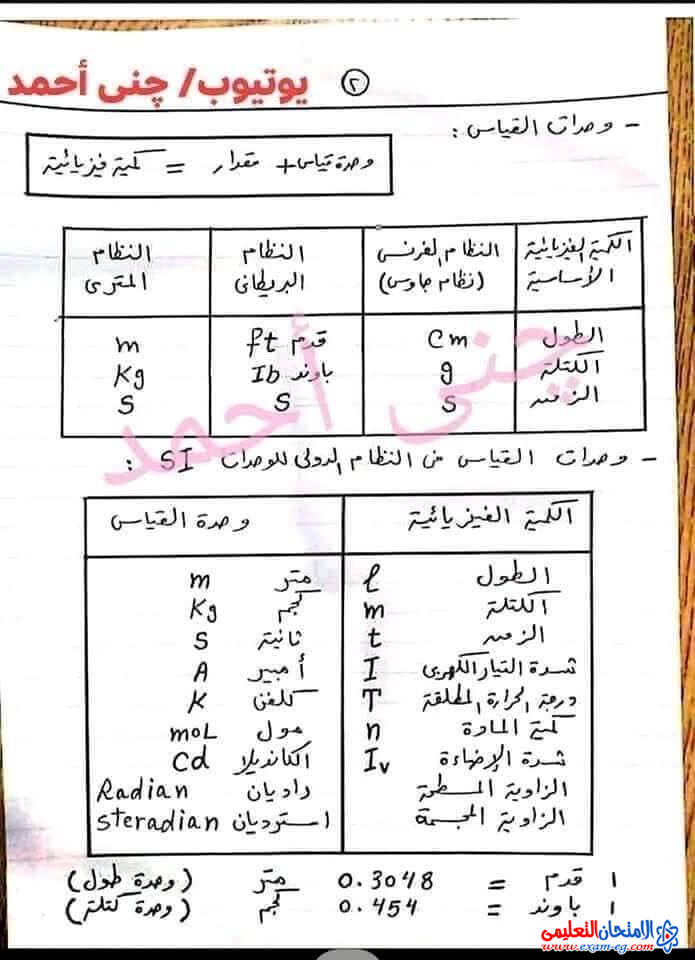 يوتيوب/ چنى أحمد ②
- وحدات القياس :
كمية فيزيائية = مقدار + وحدة قياس
الكمية الفيزيائية الأساسية | النظام الفرنسى (نظام جاوس) | النظام البريطانى | النظام المترى
الطول | cm | قدم ft | m
الكتلة | g | باوند Ib | Kg
الزمن | S | S | S
چنى أحمد
- وحدات القياس من النظام الدولى للوحدات SI :
الكمية الفيزيائية | وحدة القياس
الطول ℓ | متر m
الكتلة m | كجم Kg
الزمن t | ثانية S
شدة التيار الكهربى I | أمبير A
درجة الحرارة المطلقة T | كلفن K
كمية المادة n | مول moL
شدة الإضاءة Iv | الكانديلا Cd
الزاوية المسطحة | راديان Radian
الزاوية المجسمة | استرديان steradian
١ قدم = 0.3048 متر (وحدة طول)
١ باوند = 0.454 كجم (وحدة كتلة)
الامتحان التعليمى
www.exam-eg.com